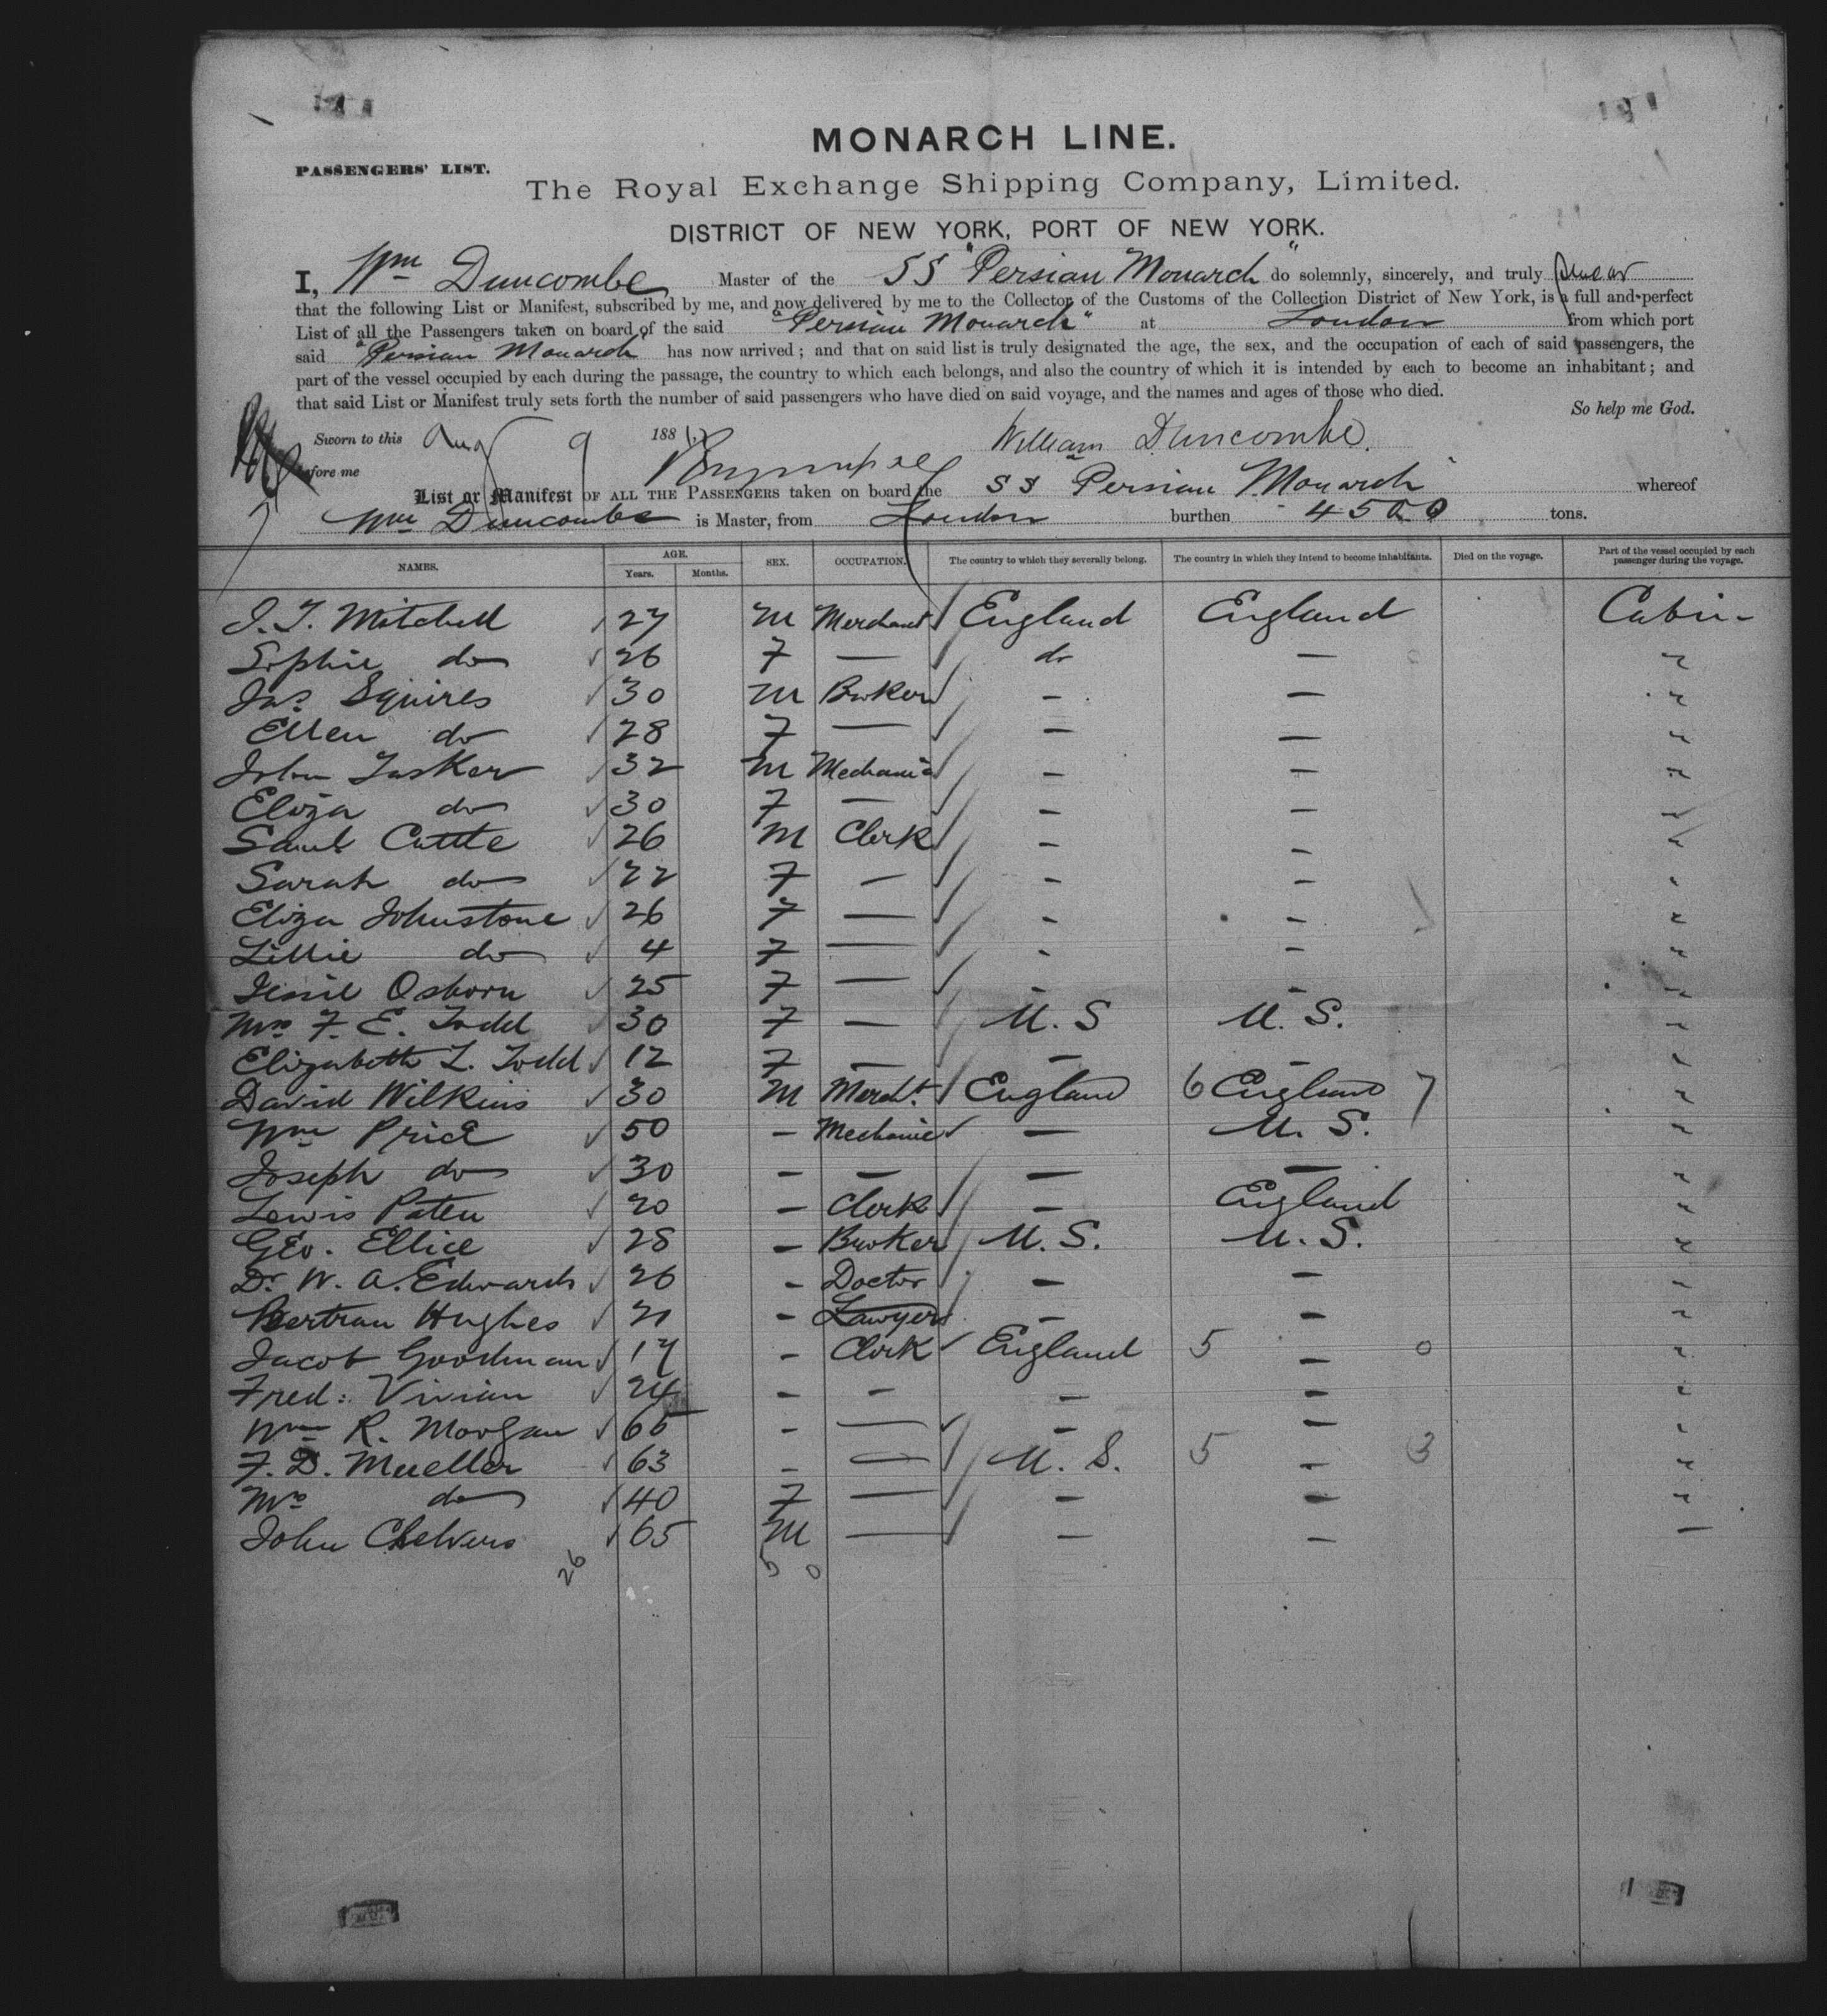 MONARCH LINE.
PASSENGERS' LIST.
The Royal Exchange Shipping Company, Limited.
DISTRICT OF NEW YORK, PORT OF NEW YORK.
I, Wm Duncombe Master of the SS "Persian Monarch" do solemnly, sincerely, and truly swear
that the following List or Manifest, subscribed by me, and now delivered by me to the Collector of the Customs of the Collection District of New York, is a full and perfect
List of all the Passengers taken on board of the said "Persian Monarch" at London from which port
said "Persian Monarch" has now arrived; and that on said list is truly designated the age, the sex, and the occupation of each of said passengers, the
part of the vessel occupied by each during the passage, the country to which each belongs, and also the country of which it is intended by each to become an inhabitant; and
that said List or Manifest truly sets forth the number of said passengers who have died on said voyage, and the names and ages of those who died.
So help me God.
Sworn to this Aug 9 188 William Duncombe
before me
List or Manifest OF ALL THE PASSENGERS taken on board the SS Persian Monarch whereof
Wm Duncombe is Master, from London burthen 4500 tons.
NAMES. AGE. Years. Months. SEX. OCCUPATION. The country to which they severally belong. The country in which they intend to become inhabitants. Died on the voyage. Part of the vessel occupied by each passenger during the voyage.
J. T. Mitchell 27 M Merchant England England Cabin
Sophie do 26 F — do — "
Jas Squires 30 M Broker — — "
Ellen do 28 F — — — "
John Tasker 32 M Mechanic — — "
Eliza do 30 F — — — "
Saml Cuttle 26 M Clerk — — "
Sarah do 22 F — — — "
Eliza Johnstone 26 F — — — "
Lillie do 4 F — — — "
Jessie Osborn 25 F — — — "
Mrs F. E. Todd 30 F — U.S U.S. "
Elizabeth L. Todd 12 F — — — "
David Wilkins 30 M Mercht. England 6 England 7 "
Wm Price 50 — Mechanic — U.S. "
Joseph do 30 — — — — "
Lewis Paten 20 — Clerk — England "
Geo. Ellice 28 — Broker U.S. U.S. "
Dr. W. A. Edwards 26 — Doctor — — "
Bertran Hughes 21 — Lawyer — — "
Jacob Goodman 17 — Clerk England 5 — 0 "
Fred: Vivian 24 — — — — "
Wm R. Morgan 65 — — — — "
F. D. Mueller 63 — — U.S. 5 — 3 "
Mrs do 40 F — — — "
John Chelvers 65 M — — — —
26 5 0